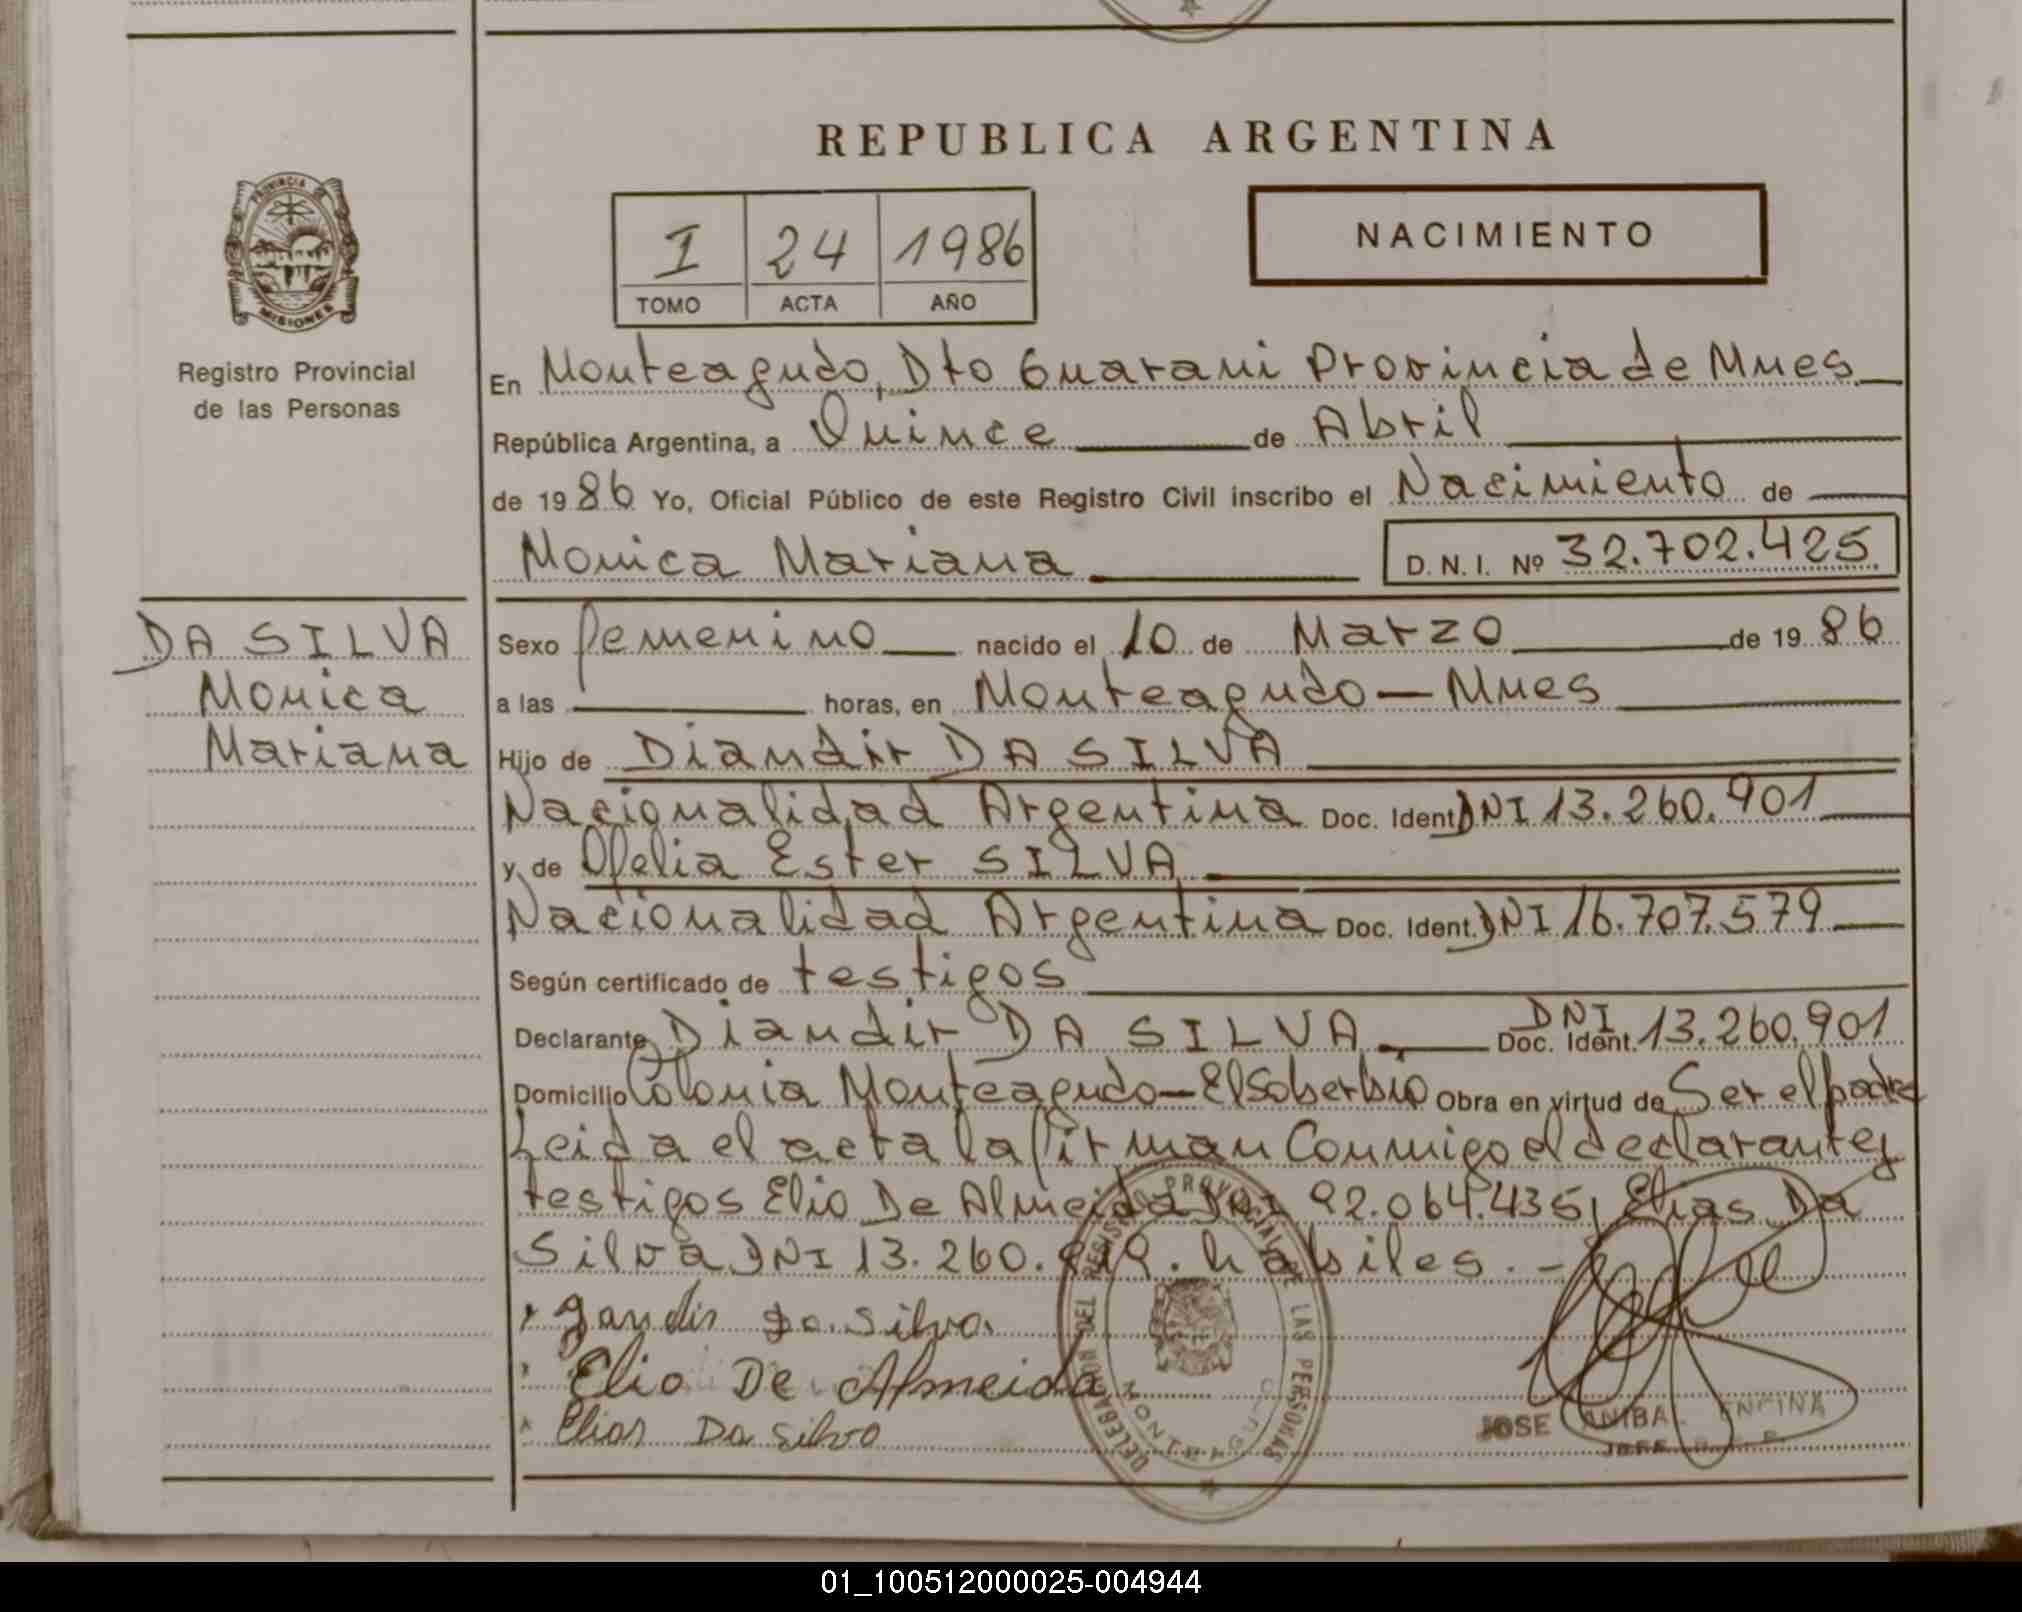 REPUBLICA ARGENTINA
PROVINCIA
MISIONES
Registro Provincial
de las Personas
I 24 1986
TOMO ACTA AÑO
NACIMIENTO
En Monteagudo, Dto Guarani Provincia de Mnes
República Argentina, a Quince de Abril
de 1986 Yo, Oficial Público de este Registro Civil inscribo el Nacimiento de
Monica Mariana D. N. I. Nº 32.702.425
DA SILVA
Monica
Mariana
Sexo femenino nacido el 10 de Marzo de 1986
a las horas, en Monteagudo - Mnes
Hijo de Diandir DA SILVA
Nacionalidad Argentina Doc. Ident. DNI 13.260.901
y de Ofelia Ester SILVA
Nacionalidad Argentina Doc. Ident. DNI 16.707.579
Según certificado de testigos
Declarante Diandir DA SILVA Doc. Ident. DNI 13.260.901
Domicilio Colonia Monteagudo - El Soberbio Obra en virtud de Ser el padre
Leida el acta la firman Conmigo el declarante y
testigos Elio De Almeida DNI 92.064.435, Elias Da
Silva DNI 13.260. habiles. -
Jandir Da Silva
Elio De Almeida
Elias Da Silva
DELEGACION DEL REGISTRO PROVINCIAL DE LAS PERSONAS
MONTEAGUDO
JOSE ANIBAL ENCINA
01_100512000025-004944